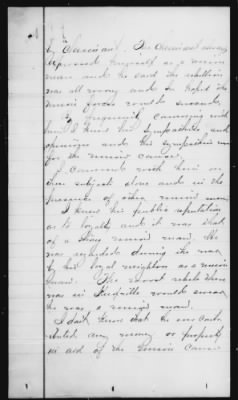 by Claimant. The Claimant always
expressed himself as a union
man and he said the rebellion
was all wrong and he hoped the
union forces would succeed.
By frequently conversing with
him I knew his sympathies and
opinions and his sympathies were
for the union cause.
I conversed with him on
the subject alone and in the
presence of other union men.
I knew his public reputation
as to loyalty and it was that
of a strong union man. He
was regarded during the war
by his loyal neighbors as a union
man. The worst rebels there
was in would swear
he was a union man.
I dont know that he ever contri
buted any money or property
in aid of the Union Cause